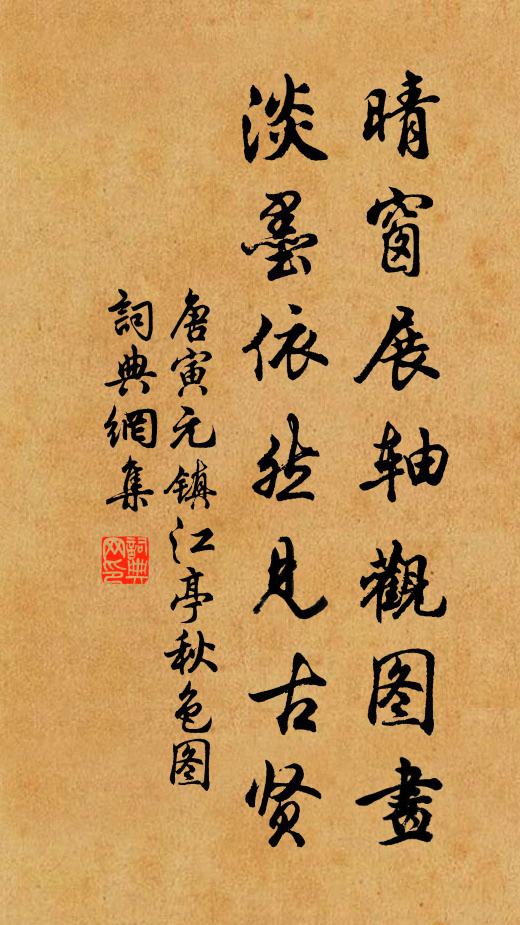 晴窗展轴觀图畫
淡墨依然見古贤
唐寅元镇江亭秋色图
詞典網集
詞典網印